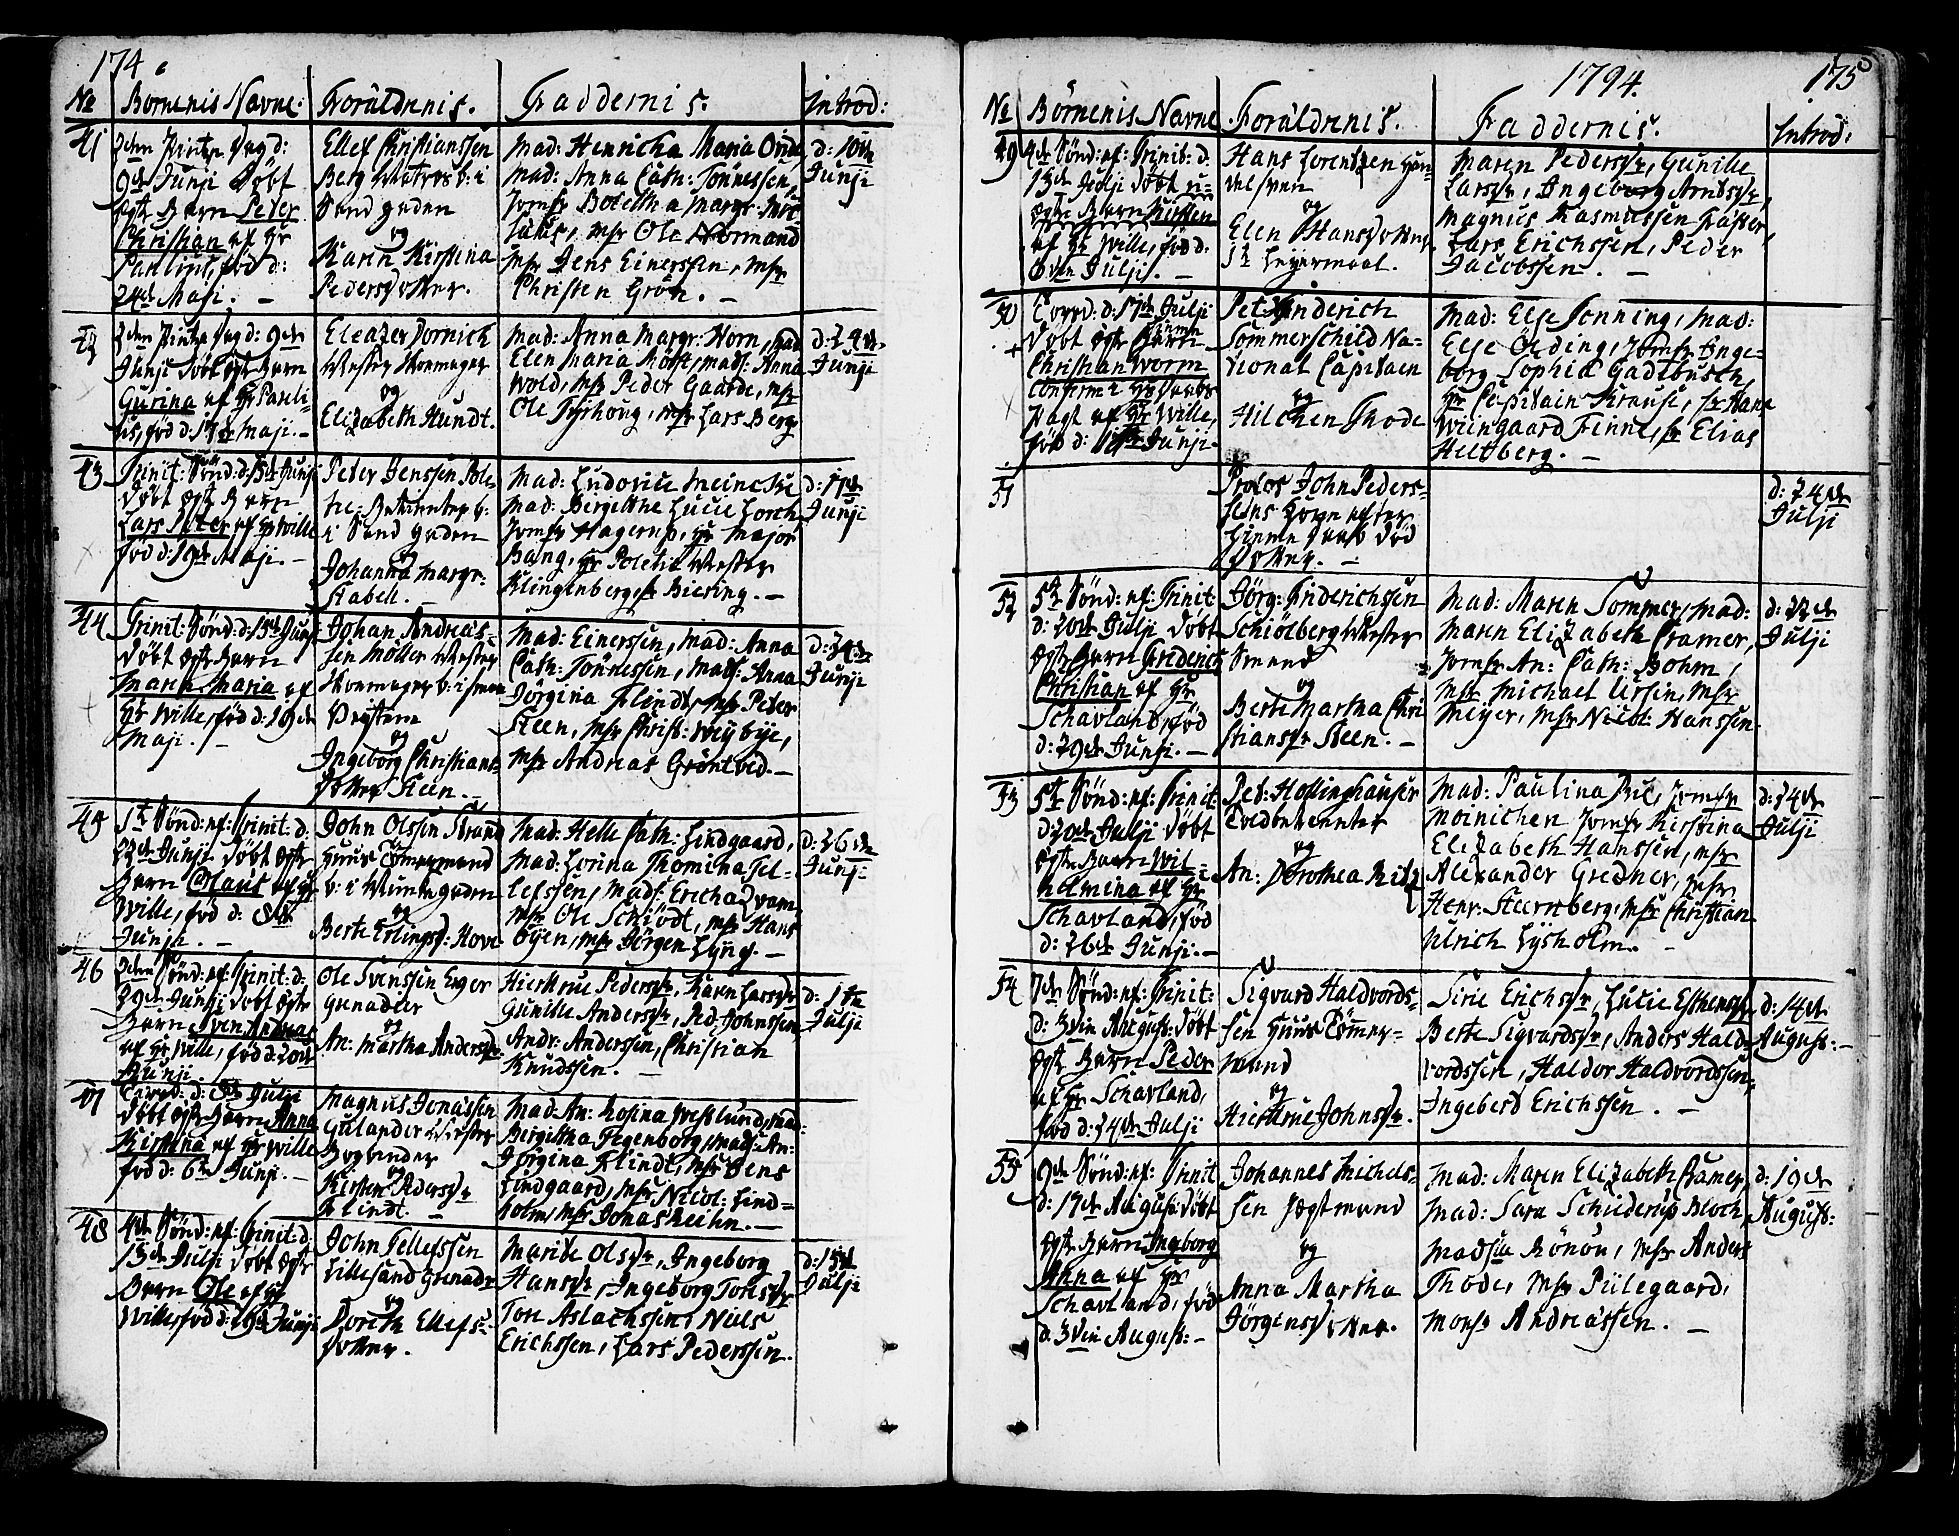 174
No Börnenis Navne. Foräldrenis. Faddernis. Introd:
41
2den Pintze Dag d:
9de Junji Döbt
ægte Barn Peder
Christian af Hr
Paulinus, fød d:
24de Maji. –
Ellef Christianssen
Berg Matros b: i
Sand gaden
og
Karen Kirstina
Pedersdotter.
Mad: Henricha Maria
Mad: Anna Cath: Tønnessen,
Jomfr Bolettha Margr:
Msr Ole Normand
Msr Jens Einerssen, Msr
Christen Grön. –
d: 10de
Junji
42
2den Pintze Dag d: 9de
Junji Döbt ægte Barn
Gurina af Hr Pauli-
us, fød d: 17de Maji. –
Eleazer Dornich
Mester Skomager
og
Elizabeth Hundt.
Mad: Anna Margr: Horn, Mad
Elen Maria Mohr, Mads: Anna
Wold, Msr Peder Gaarde, Msr
Ole Tyrhoug, Msr Lars Berg
d: 24de
Junji
43
Trinit: Sönd: d: 15de Junji
Döbt ægte Barn
Lars Peter af Hr Wille
fød d: 19de Maji. –
Peder Jenssen
Betienter b:
i Sand gaden
og
Johanna Margr:
Stabell.
Mad: Ludovice Meincke
Mad: Birgitthe Lucie Lorch
Jomfr Hagerup, Hr Major
Bang, Hr Politie Mester
Klingenberg, Biering. –
d: 17de
Junji
44
Trinit: Sönd: d: 15de Junji
Döbt ægte Barn
Maren Maria af
Hr Wille, fød d: 19de
Maji. –
Johan Andreas-
sen Möller Mester
Skomager b: i
og
Ingeborg Christians-
dotter Steen. –
Mad: Einerssen, Mad: Anna
Cath: Tönnessen, Mads: Anna
Jörgina Flindt, Msr Peter
Steen, Msr Christ: Weybye,
Msr Andreas Gröntved. –
d: 24de
Junji
45
1te Sönd: ef: Trinit: d:
22de Junji Döbt ægte
Barn Olaus af Hr
Wille, fød d: 8de
Junji. –
John Olssen Strand
Huus Tömermand
b: i Munke gaden
og
Berte Erlingsd: Hove
Mad: Helle Cath: Lindgaard,
Mad: Lorina Thomicha Tel-
lefssen, Mads: Ericha
Msr Ole Schiödt, Msr Hans
Öyen, Msr Jörgen Lyng. –
d: 26de
Junji
46
2den Sönd: ef: Trinit: d:
29de Junji Döbt ægte
Barn Sven Andreas
af Hr Wille, fød d: 20de
Junji.
Ole Svenssen Eeger
Grenadeer
og
An: Martha Andersdr
Hierttrue Pedersdr, Karn Larsdr
Gunille Andersdr, Ped: Johnssen
Andr: Anderssen, Christian
Knudssen. –
d: 1te
Julji
47
Torsd: d: 8de Julji
Döbt ægte Barn Anna
Kirstina af Hr Wille
fød d: 6te Junji. –
Magnus Jonassen
Gulander Mester
Bogbinder
og
Kirsten Pedersdr
Flindt. –
Mad: An: Rosina Westlund, Mad:
Birgittha Tegenborg, Mads: An:
Jörgina Flindt, Msr Jens
Lindgaard, Msr Nicol: Lind-
holm, Msr Jonas Reihn. –
48
4de Sönd: ef: Trinit: d:
13de Julji Döbt ægte
Barn Ole af Hr
Wille, fød d: 29de Junji
John Tellefssen
Lillesand Grenadr
og
Dorith Ellefs-
dotter.
Marite Olsdr, Ingeborg
Hansdr, Ingeborg Tonsdr
Ton Aslachssen, Niels
Erichssen, Lars Pederssen.
d: 15de
Julji
1794. 175
No Börnenis Navne. Foräldrenis. Faddernis. Introd:
49
4de Sönd: ef: Trinit: d.
13de Julji Döbt u-
ægte Barn Kirsten
af Hr Wille, fød d:
6den Julji. –
Hans Lorentzen Han-
delsven
og
Elen Hansdotter
1te Leyermaal.
Maren Pedersdr, Gunille
Larsdr, Ingeborg Arntsdr,
Magnus Rasmussen Gräffer,
Lars Erichssen, Peder
Jacobssen. –
50
Torsd: d: 17de Julji
Döbt ægte Barn
Christian Worm
af Hr Wille,
fød d: Junji
Pet: Friderich
Sommerschild Na-
tional Capitain
og
Hilchen Thode
Mad: Else Lenning, Mad:
Else Ölding, Jomfr Inge-
borg Sophia Gadebusch,
Hr Capitain Krause, Sr Hans
Wiingaard Finne, Sr Elias
Heltberg. –
51
Prolos John Peders-
sens Kone efter
hinne Barns Död
og
d: 24de
Julji
52
5te Sönd: ef: Trinit
d: 20de Julji Döbt
ægte Barn Friderich
Christian af Hr
Schavland, fød
d: 29de Junji. –
Jörg: Friderichsen
Schiölberg Mester
Smed
og
Berte Martha Chri-
stiansdr Steen. –
Mad: Maren Sommer, Mad:
Maren Elizabeth Cramer,
Jomfr An: Cath: Bohm,
Msr Michael Ursin, Msr
Meyer, Msr Nicol: Hanssen
d: 22de
Julji
53
5te Sönd: ef: Trinit
d: 20de Julji Döbt
ægte Barn Wil-
helmina af Hr
Schavland, fød
d: 26de Junji. –
Ped: Hollinghauser
Toldbetienter
og
An: Dorothea Ritz
Mad: Paulina Bie, Jomfr
Moinichen Jomfr Kirstina
Elizabeth Hanssen, Msr
Alexander Gredner, Msr
Henr: Steernberg, Msr Christian
Ulrich Lysholm. –
d: 24de
Julji
54
7de Sönd: ef: Trinit:
d: 3die August: Döbt
ægte Barn Peder
af Hr Schavland,
fød d: 24de Julji
Sigvard Haldvords-
sen Huus Tömmer-
mand
og
Hierttrue Johnsdr.
Sirie Erichsdr, Lucie Esthensdr
Berte Sigvardsdr, Anders Hald-
vordssen, Haldor Haldvordssen,
Ingebert Erichssen. –
d: 14de
August: –
55
9de Sönd: ef: Trinit
d: 17de August: Döbt
ægte Barn Ingeborg
Anna af Hr
Schavland, fød
d: 3die August: –
Johannes Michels-
sen Fægtmand
og
Anna Martha
Jörgensdotter.
Mad: Maren Elizabeth Cramer,
Mad: Sara Schiderup Bloch,
Madslle Rönön, Msr Anders
Thode, Msr Piilegaard,
Monsr Andreassen. –
d: 19de
August: